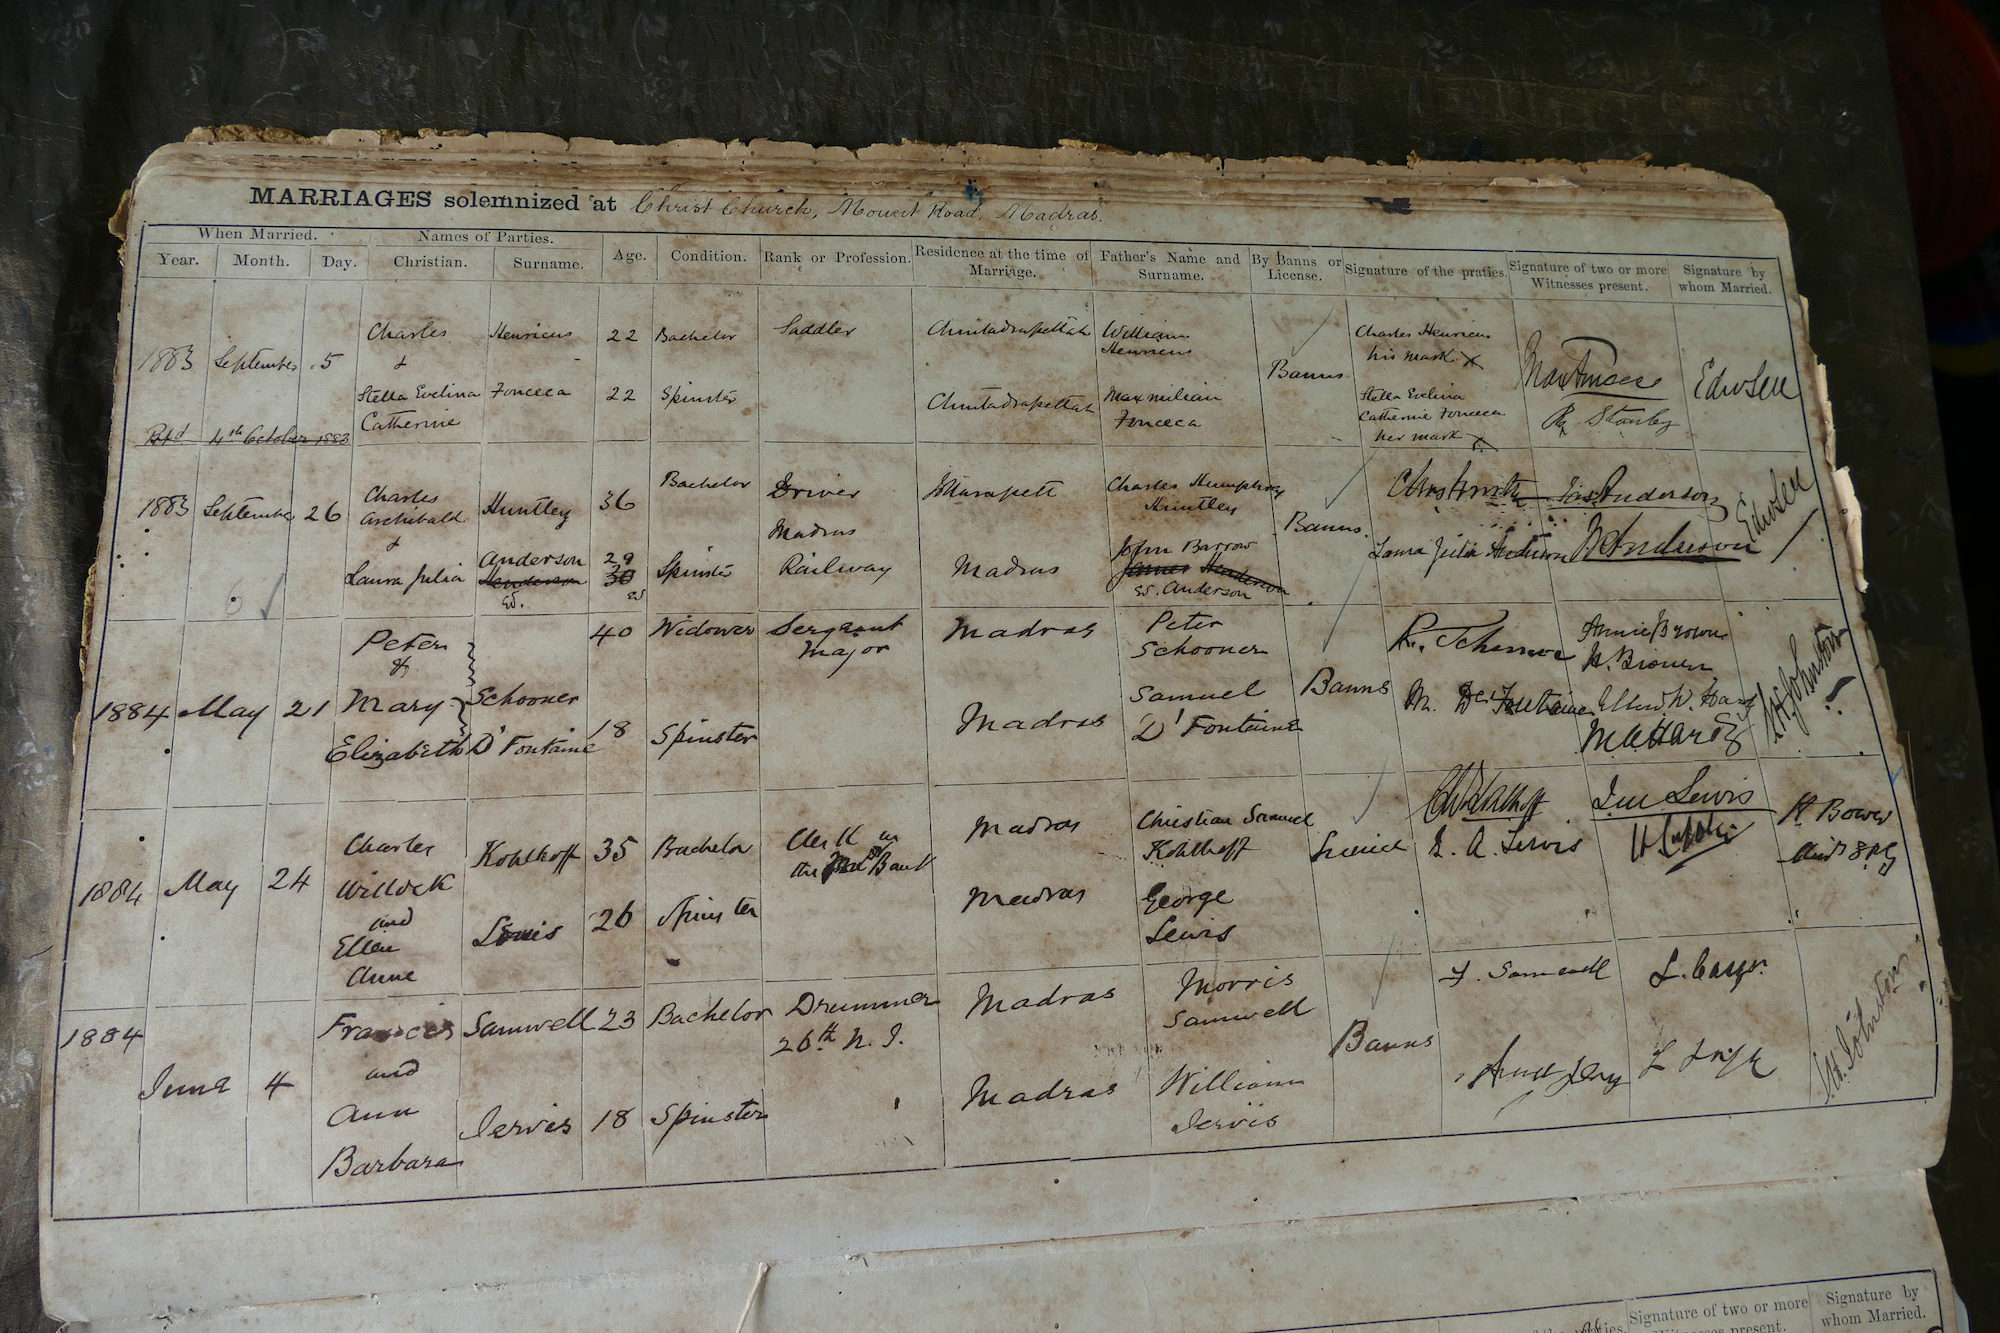 MARRIAGES solemnized at Christ Church, Mount Road, Madras.
When Married. Names of Parties. Age. Condition. Rank or Profession. Residence at the time of Marriage. Father's Name and Surname. By Banns or License. Signature of the praties. Signature of two or more Witnesses present. Signature by whom Married.
Year. Month. Day. Christian. Surname.
Charles Henricus 22 Bachelor Saddler Chintadrapettah William Henricus Charles Henricus his mark x
1883 September 5 & Banns
Stella Evelina Catherine Fonceca 22 Spinster Chintadrapettah Maxmilian Fonceca Stella Evelina Catherine Fonceca her mark x R Stanley
4th October 1883
1883 September 26 Charles Archibald Huntley 36 Bachelor Driver Madras Railway Charles Humphrey Huntley Banns
& Laura Julia Anderson Henderson Ed. 29 30 Ed Spinster Madras John Barrow James Henderson Ed. Anderson Laura Julia Anderson
Peter 40 Widower Sergeant Major Madras Peter Schooner Annie Brown
&
1884 May 21 Mary Elizabeth Schooner D'Fontaine 18 Spinster Madras Samuel D'Fontaine Banns M. A. Hardy
Charles Willock Kohlhoff 35 Bachelor Clerk in the Bank Madras Christian Samuel Kohlhoff Lewis H Bower
1884 May 24 and
Ellen Anne Lewis 26 Spinster Madras George Lewis E. A. Lewis
1884 Francis Samwell 23 Bachelor Drummer 26th N. I. Madras Morris Samwell Banns F. Samwell
June 4 and
Ann Barbara Jervis 18 Spinster Madras William Jervis
Signature of two or more Witnesses present. Signature by whom Married.